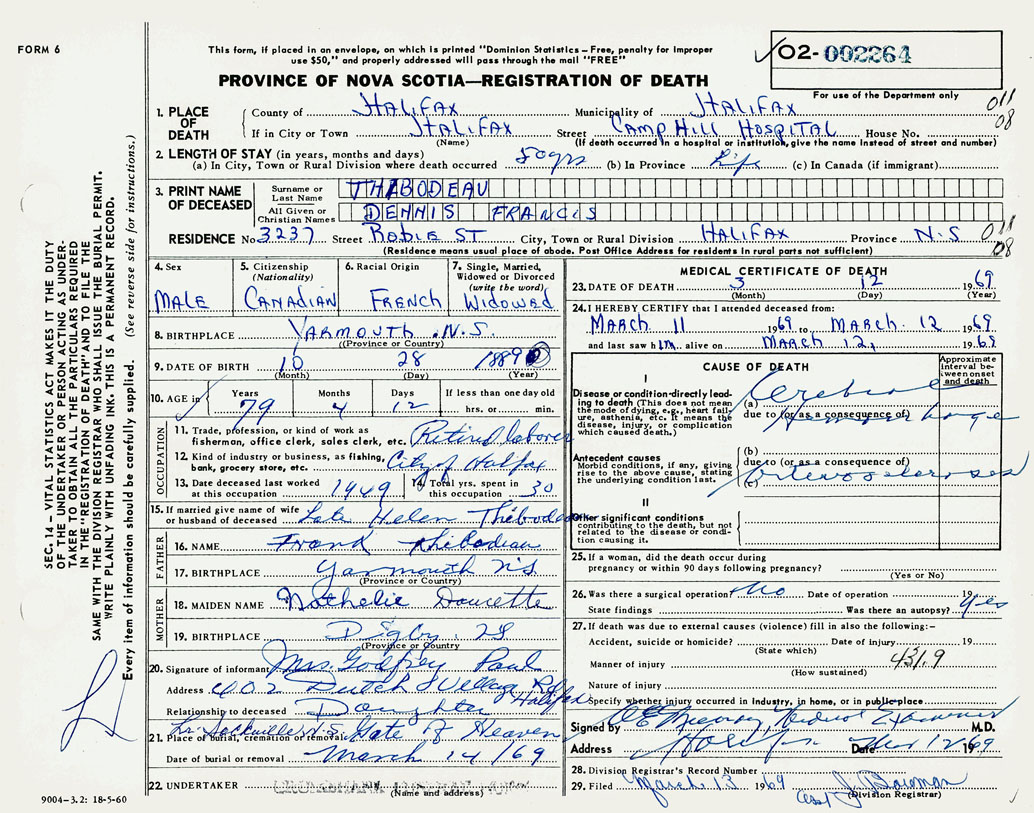 FORM 6
This form, if placed in an envelope, on which is printed "Dominion Statistics – Free, penalty for improper
use $50," and properly addressed will pass through the mail "FREE"
O2-002264
PROVINCE OF NOVA SCOTIA—REGISTRATION OF DEATH
For use of the Department only
011
08
1. PLACE OF DEATH
County of HALIFAX Municipality of HALIFAX
If in City or Town HALIFAX Street CAMP HILL HOSPITAL House No.
(Name) (If death occurred in a hospital or institution, give the name instead of street and number)
2. LENGTH OF STAY (in years, months and days)
(a) In City, Town or Rural Division where death occurred 50 yrs (b) In Province Life (c) In Canada (if immigrant)
3. PRINT NAME OF DECEASED
Surname or Last Name THIBODEAU
All Given or Christian Names DENNIS FRANCIS
RESIDENCE No. 3237 Street ROBIE ST City, Town or Rural Division HALIFAX Province N.S
011
08
(Residence means usual place of abode. Post Office Address for residents in rural parts not sufficient)
4. Sex MALE
5. Citizenship (Nationality) CANADIAN
6. Racial Origin FRENCH
7. Single, Married, Widowed or Divorced (write the word) WIDOWED
8. BIRTHPLACE YARMOUTH N.S.
(Province or Country)
9. DATE OF BIRTH 10 28 1889
(Month) (Day) (Year)
10. AGE in Years Months Days If less than one day old
79 4 12 hrs. or min.
OCCUPATION
11. Trade, profession, or kind of work as
fisherman, office clerk, sales clerk, etc. Retired laborer
12. Kind of industry or business, as fishing,
bank, grocery store, etc. City of Halifax
13. Date deceased last worked at this occupation 1949
14. Total yrs. spent in this occupation 30
15. If married give name of wife or husband of deceased Late Helen Thibodeau
FATHER
16. NAME Frank Thibodeau
17. BIRTHPLACE Yarmouth NS
(Province or Country)
MOTHER
18. MAIDEN NAME Nathelie Doucette
19. BIRTHPLACE Digby
(Province or Country)
20. Signature of informant Mrs. Godfrey Paul
Address 402 Dutch Village Rd Halifax
Relationship to deceased Daughter
21. Place of burial, cremation or removal Lr. Sackville N.S. Gate of Heaven
Date of burial or removal March 14/69
22. UNDERTAKER
(Name and address)
MEDICAL CERTIFICATE OF DEATH
23. DATE OF DEATH 3 12 1969
(Month) (Day) (Year)
24. I HEREBY CERTIFY that I attended deceased from:
MARCH 11 1969 to MARCH 12 1969
and last saw him alive on MARCH 12, 1969
CAUSE OF DEATH
Approximate interval between onset and death
I
Disease or condition directly leading to death (This does not mean
the mode of dying, e.g., heart failure, asthenia, etc. It means the
disease, injury, or complication
which caused death.)
(a) Cerebral
due to (or as a consequence of) hemorrhage
Antecedent causes
Morbid conditions, if any, giving
rise to the above cause, stating
the underlying condition last.
(b)
due to (or as a consequence of)
Arteriosclerosis
(c)
II
Other significant conditions
contributing to the death, but not
related to the disease or condition causing it.
25. If a woman, did the death occur during
pregnancy or within 90 days following pregnancy?
(Yes or No)
26. Was there a surgical operation? No Date of operation 19
State findings Was there an autopsy? Yes
27. If death was due to external causes (violence) fill in also the following:-
Accident, suicide or homicide? Date of injury 19
(State which)
Manner of injury 431.9
(How sustained)
Nature of injury
Specify whether injury occurred in industry, in home, or in public place
Signed by Medical Examiner M.D.
Address Halifax Date Mar 12 1969
28. Division Registrar's Record Number
29. Filed March 13 1969
(Division Registrar)
SEC. 14 – VITAL STATISTICS ACT MAKES IT THE DUTY
OF THE UNDERTAKER OR PERSON ACTING AS UNDER-
TAKER TO OBTAIN ALL THE PARTICULARS REQUIRED
IN THE "REGISTRATION OF DEATH" AND TO FILE THE
SAME WITH THE DIVISION REGISTRAR WHO SHALL ISSUE THE BURIAL PERMIT.
WRITE PLAINLY WITH UNFADING INK. THIS IS A PERMANENT RECORD.
Every item of information should be carefully supplied. (See reverse side for instructions.)
9004-3.2: 18-5-60